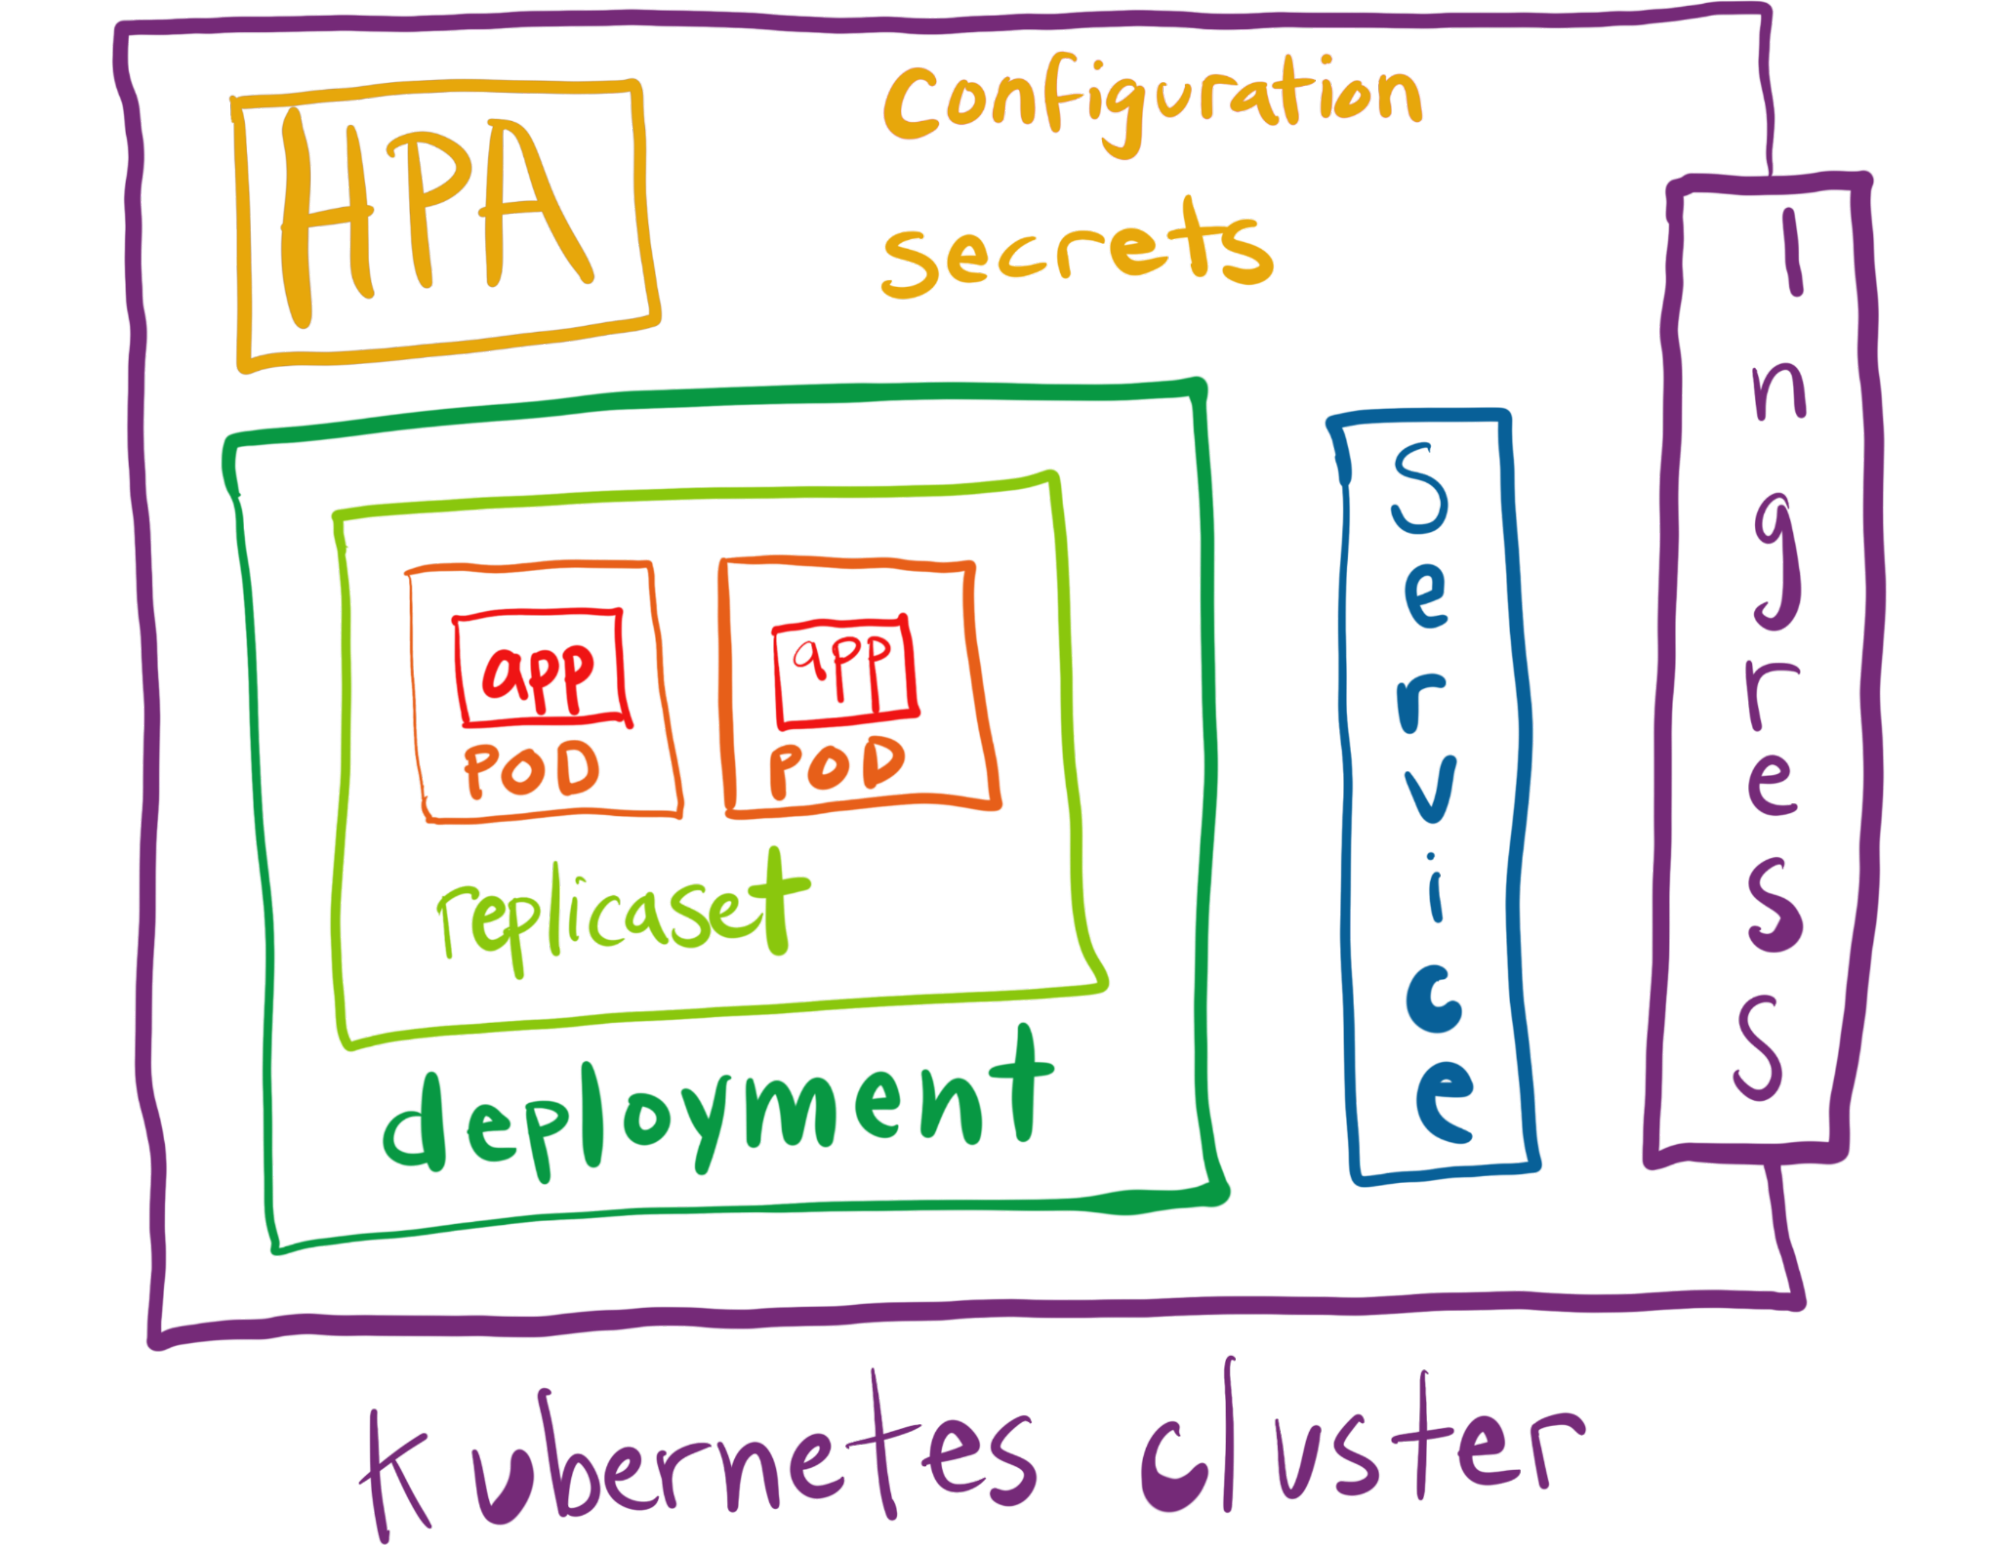 HPA
configuration
secrets
app
POD
app
POD
replicaset
deployment
Service
Ingress
kubernetes cluster